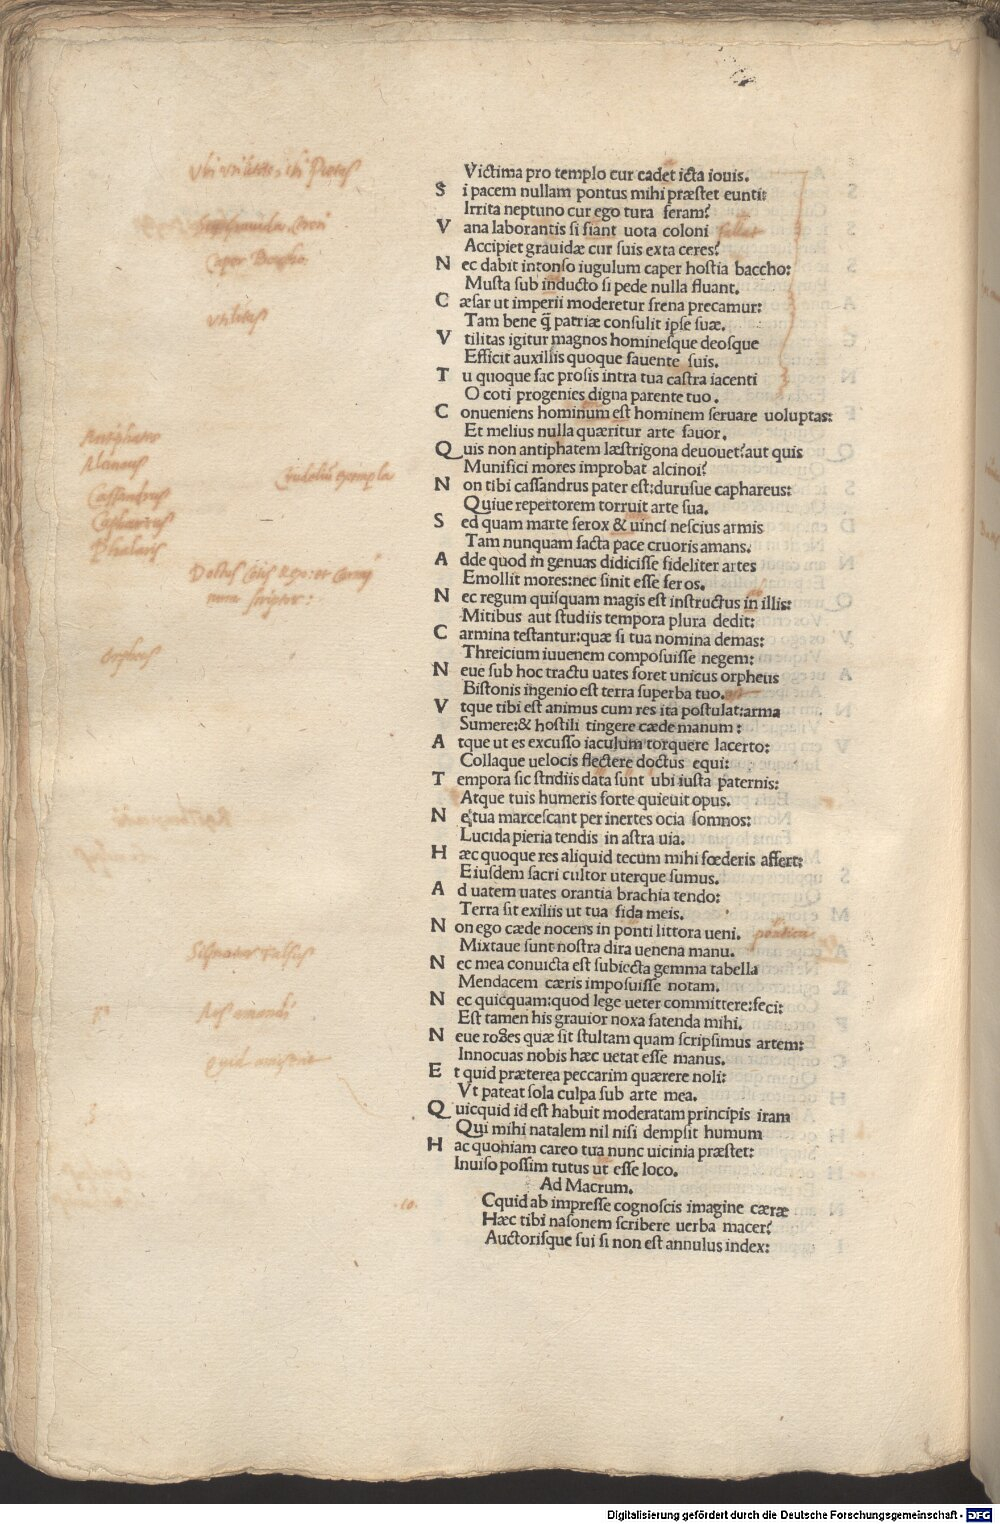 Vbi vtilitas, ibi Pietas
Victima pro templo cur cadet icta iouis.
S i pacem nullam pontus mihi præstet eunti:
Irrita neptuno cur ego tura feram?
V ana laborantis si fiant uota coloni fallat
Accipiet grauidæ cur suis exta ceres?
Caper Baccho
N ec dabit intonso iugulum caper hostia baccho:
Musta sub inducto si pede nulla fluant.
C æsar ut imperii moderetur frena precamur:
vtilitas
Tam bene q̃ patriæ consulit ipse suæ.
V tilitas igitur magnos hominesque deosque
Efficit auxiliis quoque fauente suis.
T u quoque fac prosis intra tua castra iacenti
O coti progenies digna parente tuo.
C onueniens hominum est hominem seruare uoluptas:
Et melius nulla quæritur arte fauor.
Antiphates
Q uis non antiphatem læstrigona deuouet?aut quis
Alcinous
Munifici mores improbat alcinoi?
Crudeliũ exempla
N on tibi cassandrus pater est:durusue caphareus:
Cassandrus
Quiue repertorem torruit arte sua.
Caphareus
S ed quam marte ferox & uinci nescius armis
Phalaris
Tam nunquam facta pace cruoris amans.
A dde quod in genuas didicisse fideliter artes
Doctus Cotis Rex: et Carmi
Emollit mores:nec sinit esse feros.
num scriptor:
N ec regum quisquam magis est instructus in illis:
Mitibus aut studiis tempora plura dedit:
C armina testantur:quæ si tua nomina demas:
Orpheus
Threicium iuuenem composuisse negem:
N eue sub hoc tractu uates foret unicus orpheus
Bistonis ingenio est terra superba tuo.
V tque tibi est animus cum res ita postulat:arma
Sumere:& hostili tingere cæde manum:
A tque ut es excusso iaculum torquere lacerto:
Collaque uelocis flectere doctus equi:
T empora sic stndiis data sunt ubi iusta paternis:
Atque tuis humeris forte quieuit opus.
N e tua marcescant per inertes ocia somnos:
Lucida pieria tendis in astra uia.
H æc quoque res aliquid tecum mihi fœderis affert:
Eiusdem sacri cultor uterque sumus.
A d uatem uates orantia brachia tendo:
Terra sit exiliis ut tua fida meis.
N on ego cæde nocens in ponti littora ueni. pontica
Mixtaue sunt nostra dira uenena manu.
N ec mea conuicta est subiecta gemma tabella
Mendacem cæris imposuisse notam.
N ec quicquam:quod lege ueter committere:feci:
Ars amandi
Est tamen his grauior noxa fatenda mihi.
N eue roges quæ sit stultam quam scripsimus artem:
Innocuas nobis hæc uetat esse manus.
E t quid præterea peccarim quærere noli:
Vt pateat sola culpa sub arte mea.
Q uicquid id est habuit moderatam principis iram
Qui mihi natalem nil nisi dempsit humum
H ac quoniam careo tua nunc uicinia præstet:
Inuiso possim tutus ut esse loco.
Ad Macrum.
.10. Cquid ab impresse cognoscis imagine cæræ
Hæc tibi nasonem scribere uerba macer?
Auctorisque sui si non est annulus index:
Digitalisierung gefördert durch die Deutsche Forschungsgemeinschaft - DFG